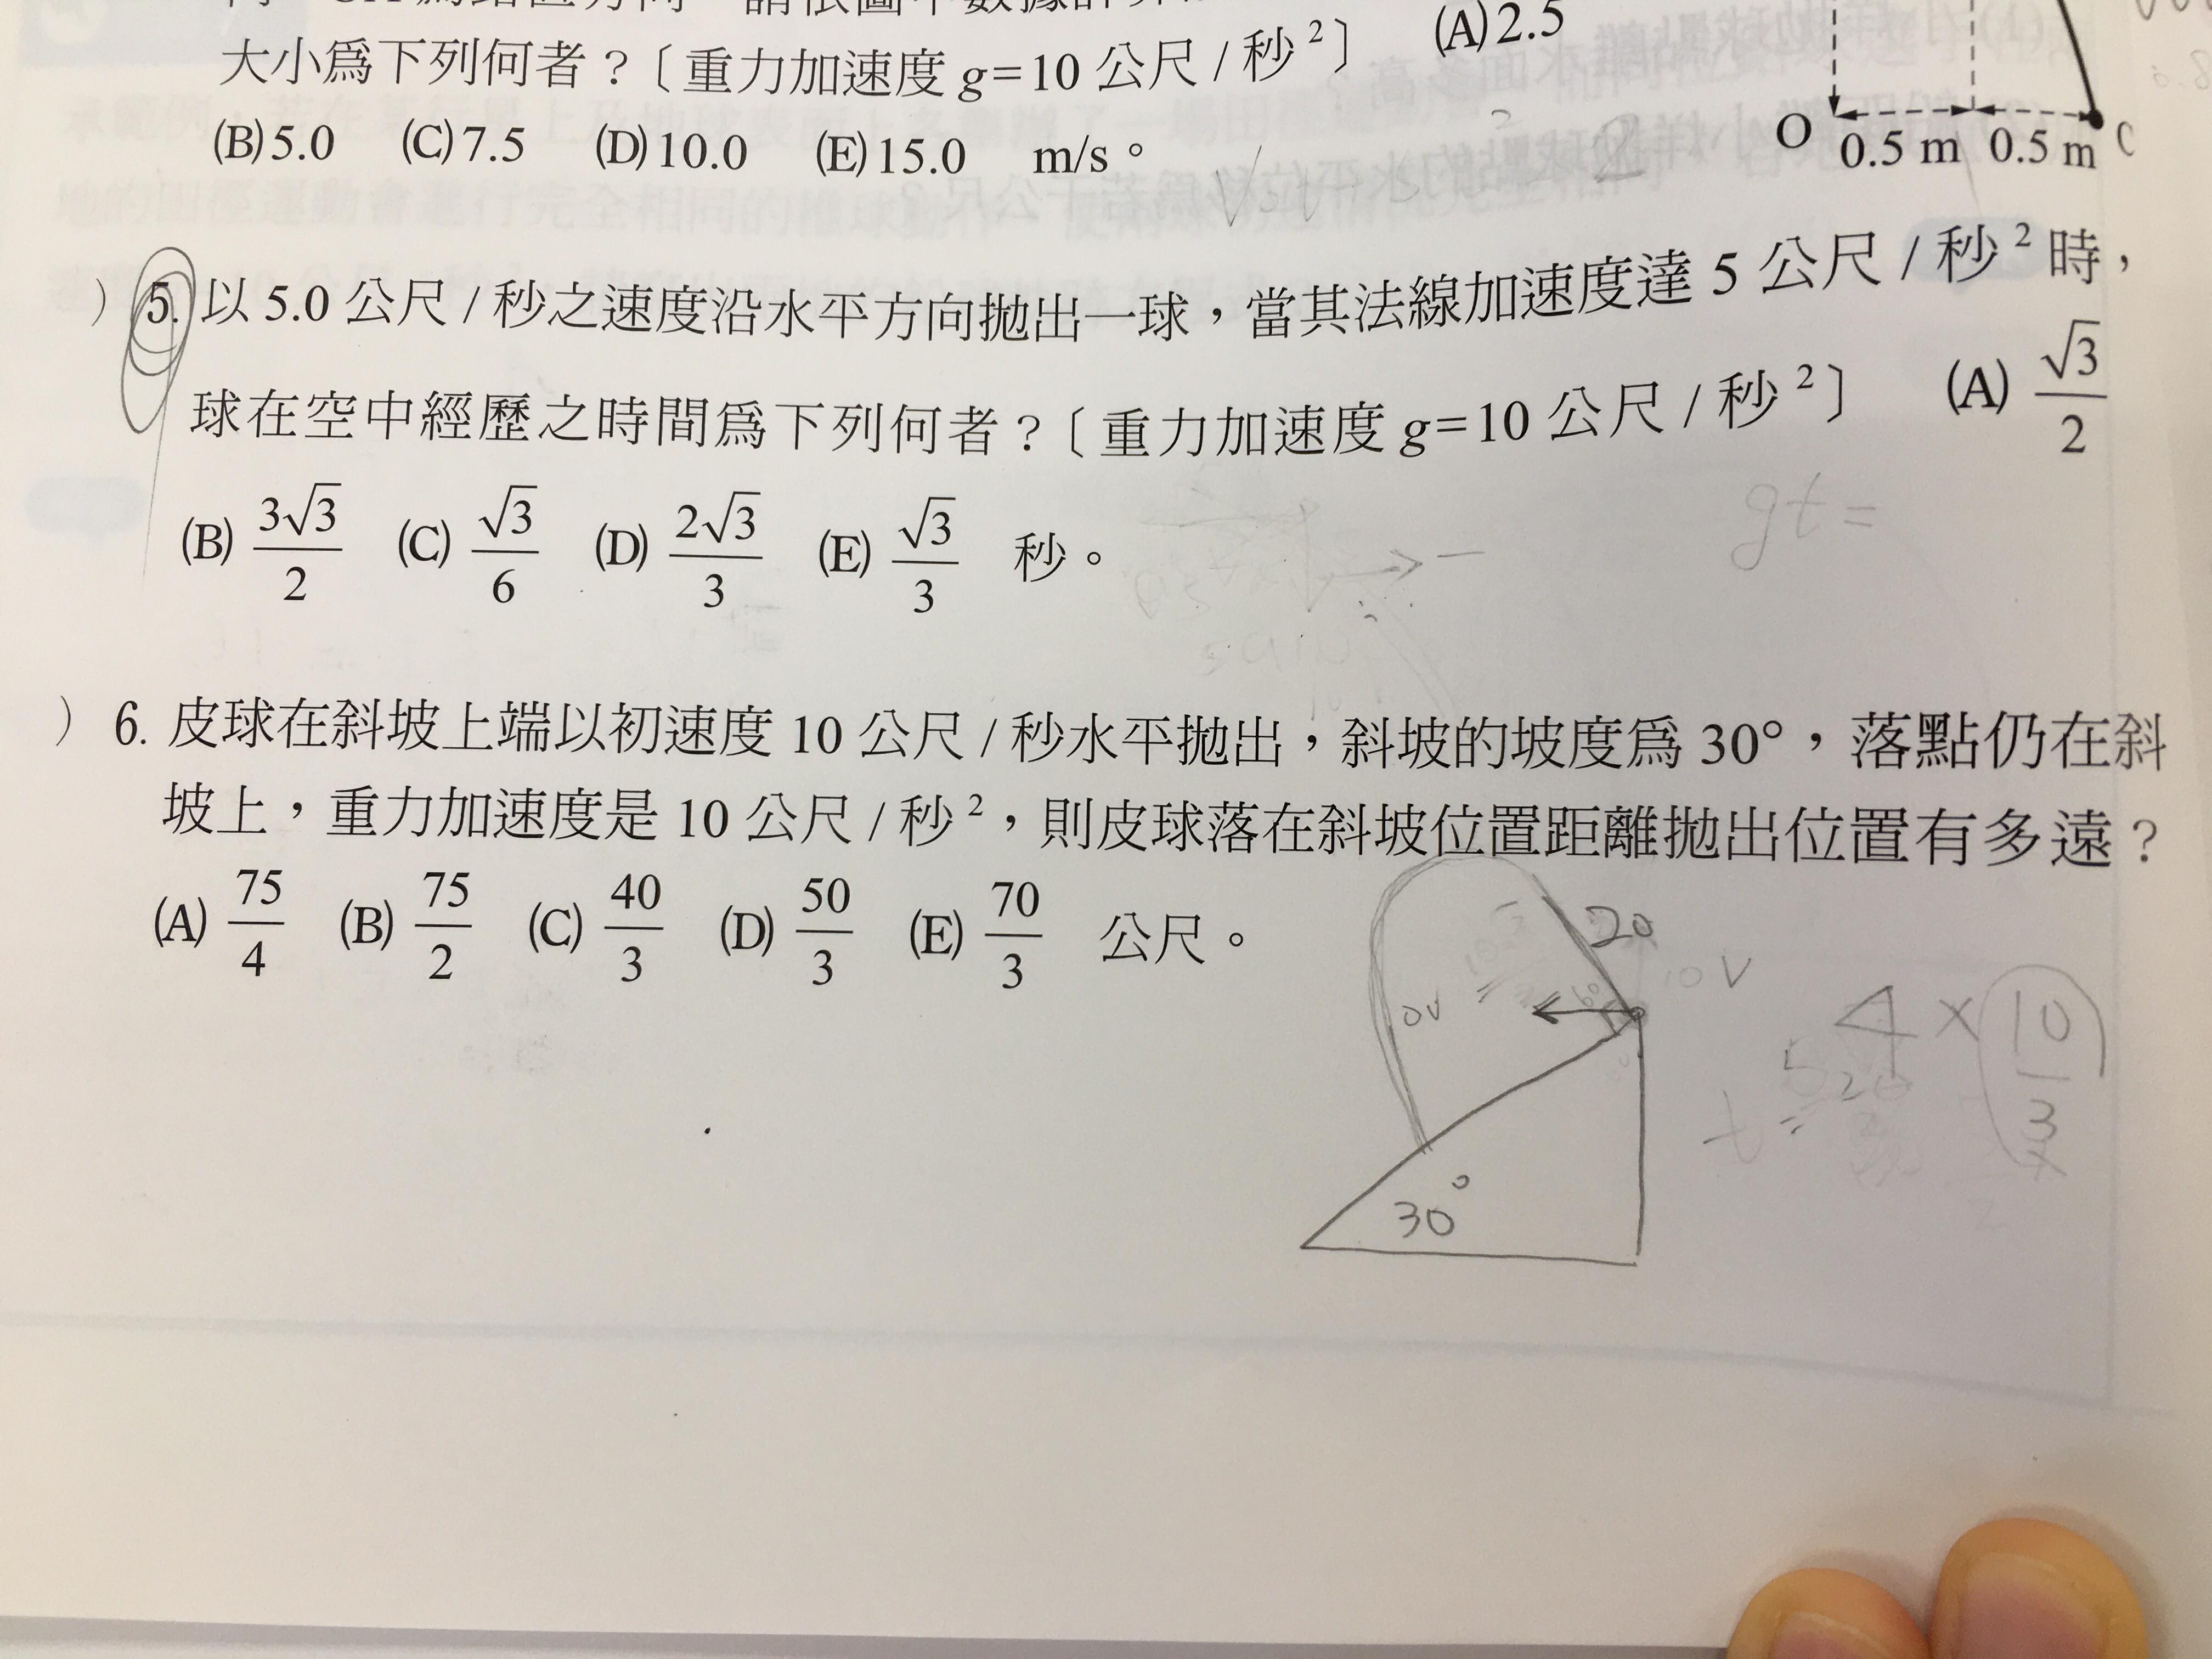 大小為下列何者？〔重力加速度 g=10 公尺／秒²〕 (A)2.5
(B)5.0 (C)7.5 (D)10.0 (E)15.0 m/s。
O 0.5 m 0.5 m C
) 5. 以 5.0 公尺／秒之速度沿水平方向拋出一球，當其法線加速度達 5 公尺／秒²時，
球在空中經歷之時間為下列何者？〔重力加速度 g=10 公尺／秒²〕 (A) √3/2
(B) 3√3/2 (C) √3/6 (D) 2√3/3 (E) √3/3 秒。
gt=
) 6. 皮球在斜坡上端以初速度 10 公尺／秒水平拋出，斜坡的坡度為 30°，落點仍在斜
坡上，重力加速度是 10 公尺／秒²，則皮球落在斜坡位置距離拋出位置有多遠？
(A) 75/4 (B) 75/2 (C) 40/3 (D) 50/3 (E) 70/3 公尺。
20
10 V
4 × 10/3
t=
30°